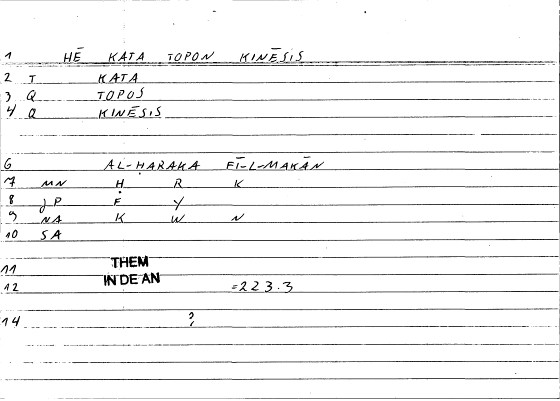 1 HĒ KATA TOPON KINĒSIS
2 T KATA
3 Q TOPOS
4 Q KINĒSIS
6 AL-ḤARAKA FĪ-L-MAKĀN
7 MN Ḥ R K
8 JP F Y
9 NA K W N
10 SA
11 THEM
IN DE AN
12 =223.3
14 ?